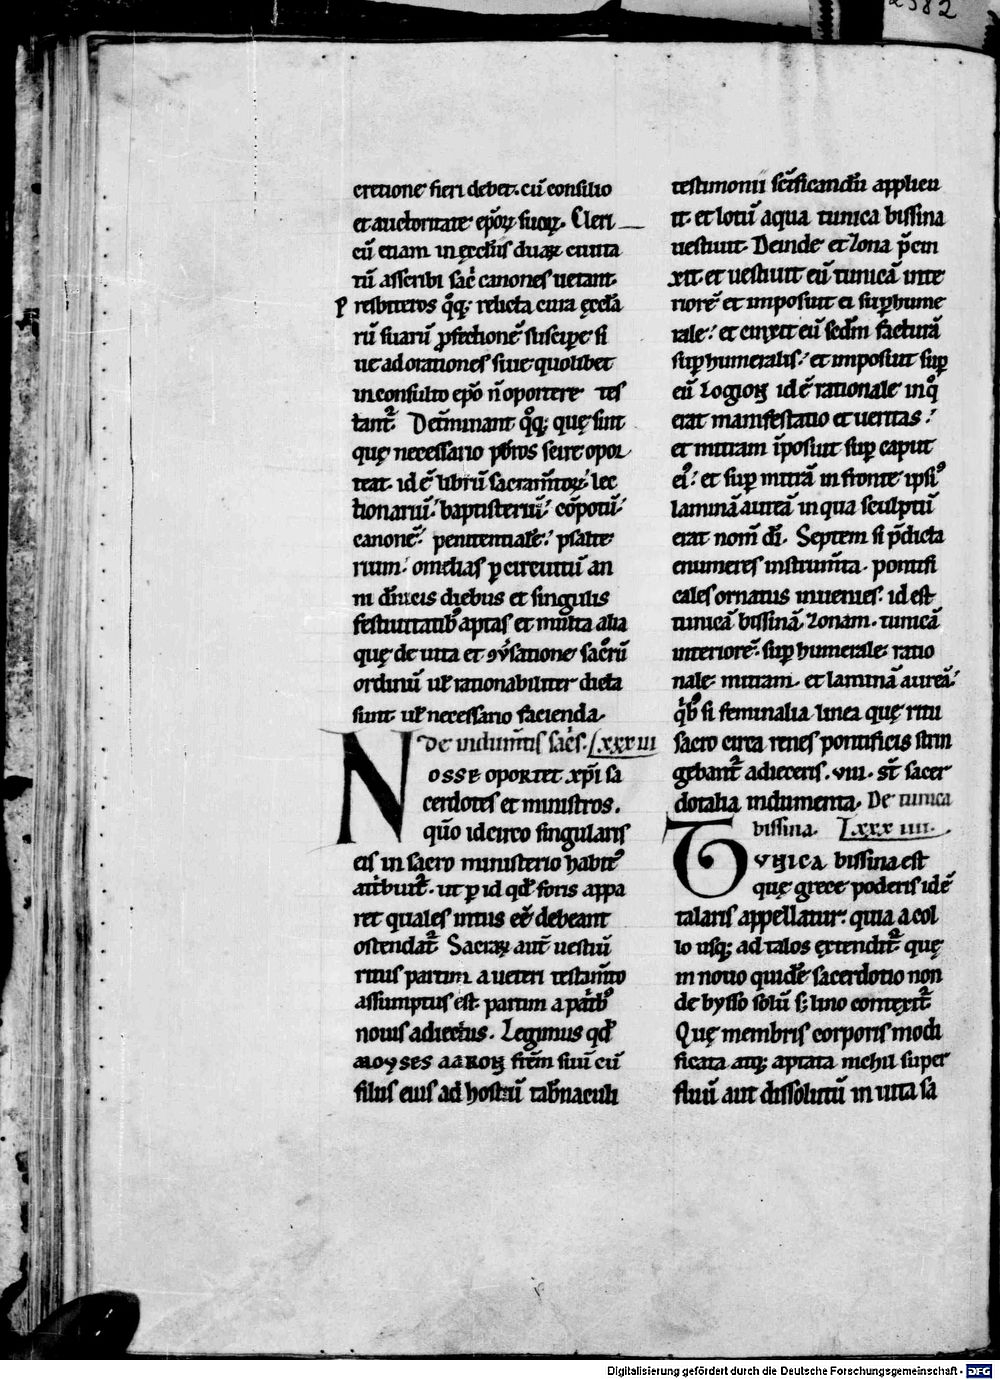 cretione fieri debet. cū consilio
et auctoritate ep̄oꝝ suoꝝ. Cleri
cū etiam in ęcclīis duaꝝ ciuita
tū asscribi sac̄ canones uetant.
Presbiteros q̊q; relicta cura ęcclā
rū suarū ꝓfectionē suscipe si
ue ad orationes siue quolibet
inconsulto ep̄o n̄ oportere tes
tant᷑. Det̄minant q̊q; quę sint
quę necessario p̄bros scire opor
teat. id ē librū sacram̄toꝝ. lec
tionariū. baptisteriū. cōpotū.
canonē. penitentialē. psalte
rium. omelias p circuitū an
ni dn̄icis diebus et singulis
festiuitatib; aptas et multa alia
quę de uita et ꝯuersatione sac̄rū
ordinū ul̄ rationabiliter dicta
sunt ul̄ necessario facienda.
De indum̄tis sac̄s. Lxxxiii
Nosse oportet xp̄i sa
cerdotes et ministros.
qūo idcirco singularis
eis in sacro ministerio habit᷒
att̄ibuit᷑. ut p id qd̄ foris appa
ret quales intus eē debeant
ostendat᷑. Sacraꝝ aut̄ uestiū
ritus partim a ueteri testam̄to
assumptus est. partim a patrib᷒
nouis adiectus. Legimus qd̄
moyses aaron frēm suū cū
filiis eius ad hostiū tab̄naculi
testimonii sc̄ificandū applicu
it. et lotū aqua tunica bissina
uestiuit. Deinde et zona p̄cin
xit. et uestiuit eū tunicā inte
riorē et imposuit ei sup̱hume
rale. et cinxit eū sedm̄ facturā
sup̱humeralis. et imposuit sup̱
eū logion id ē rationale in q̊
erat manifestatio et ueritas.
et mitram īposuit sup̱ caput
ei᷒. et sup̱ mitrā in fronte ipsi᷒
laminā aureā in qua sculptū
erat nom̄ dī. Septem si p̄dicta
enumeres instrum̄ta. pontifi
cales ornatus inuenies. id est
tunicā bissinā. zonam. tunicā
interiorē. sup̱humerale. ratio
nale. mitram. et laminā aureā.
q̇b᷒ si feminalia linea quę ritu
sacro circa renes pontificis strin
gebant᷑ adieceris. viii. st̄ sacer
dotalia indumenta. De tunica
bissina. Lxxxiiii.
Tunica bissina est
quę grece poderis id ē
talaris appellatur. quia a col
lo usq; ad talos extendit᷑ quę
in nouo quidē sacerdotio non
de bysso solū s; lino contexit᷑.
Quę membris corporis modi
ficata atq; aptata nichil super
fluū aut dissolutū in uita sa